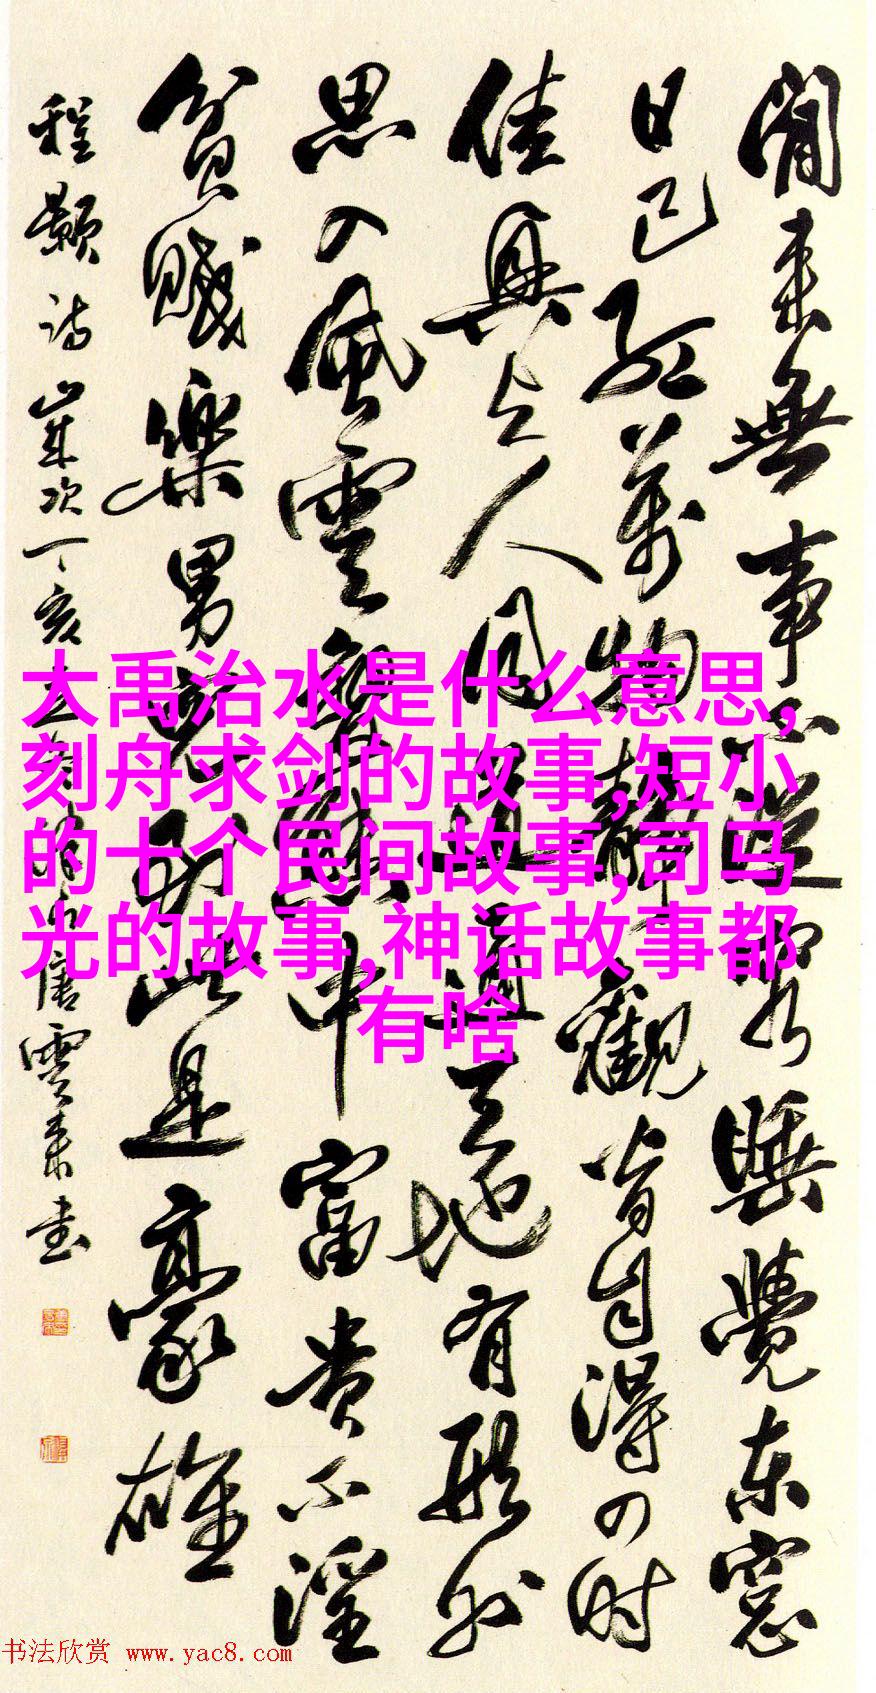 閒来無事不從容睡覺东窓
日已紅萬物静觀皆自得四时
佳興与人同道通天地有形外
思入風雲變態中富貴不淫
貧賤樂男兒到此是豪雄
程颢诗歲次丁亥唐雲来书
大禹治水是什么意思,
刻舟求剑的故事,短小
的十个民间故事,司马
光的故事,神话故事都
有啥
书法欣赏 www.yac8.com